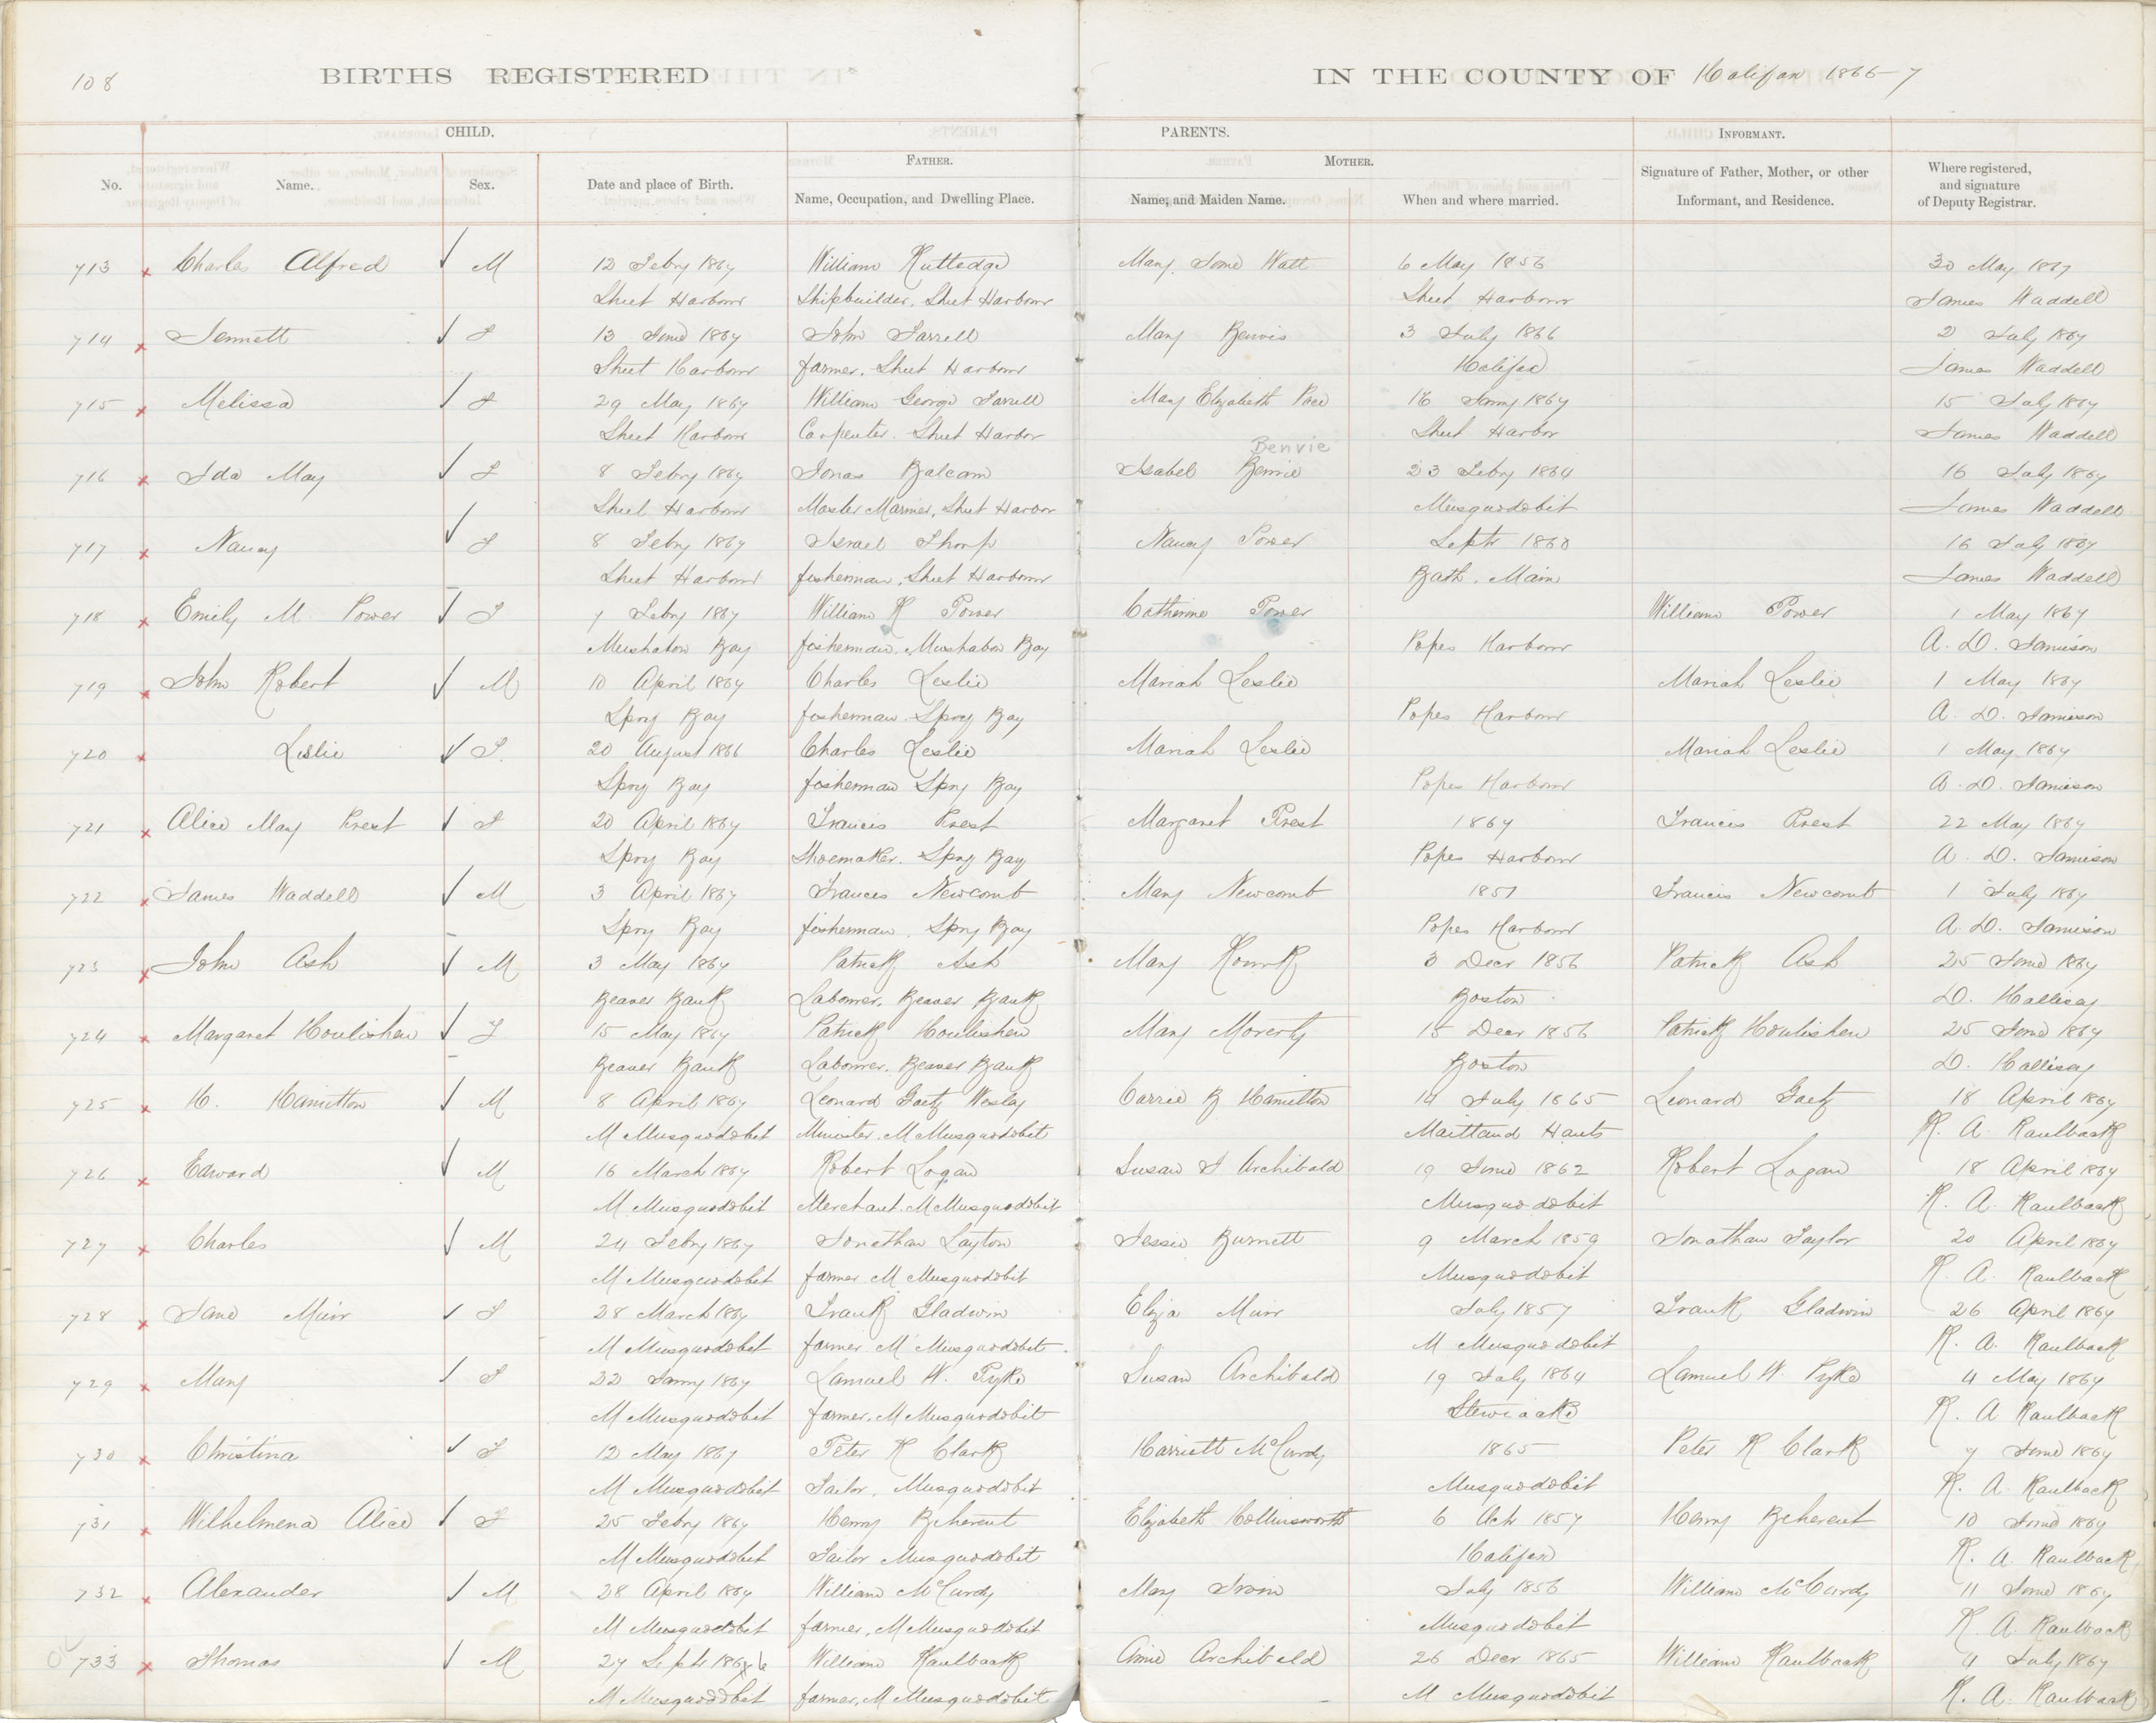 108
BIRTHS REGISTERED
IN THE COUNTY OF Halifax 1866-7
CHILD.
PARENTS.
INFORMANT.
FATHER.
MOTHER.
No.
Name.
Sex.
Date and place of Birth.
Name, Occupation, and Dwelling Place.
Name, and Maiden Name.
When and where married.
Signature of Father, Mother, or other
Informant, and Residence.
Where registered,
and signature
of Deputy Registrar.
713 Charles Alfred M 12 Febry 1867 William Rutledge Mary Jane Watt 6 May 1856 30 May 1867
Sheet Harbour Shipbuilder, Sheet Harbour Sheet Harbour James Waddell
714 Jennett F 13 June 1867 John Farrell Mary 3 July 1866 2 July 1867
Sheet Harbour farmer, Sheet Harbour Halifax James Waddell
715 Melissa F 29 May 1867 William George Farrell Mary Elizabeth Pace 16 Janry 1867 15 July 1867
Sheet Harbour Carpenter. Sheet Harbor Sheet Harbor James Waddell
Benvie
716 Ida May F 8 Febry 1867 Jonas Balcam Isabel Bennie 23 Febry 1864 16 July 1867
Sheet Harbour Master Marmer, Sheet Harbor Musquodobit James Waddell
717 Nancy F 8 Febry 1867 Israel Thorp Nancy Power Septr 1860 16 July 1867
Sheet Harbour fisherman, Sheet Harbour Bath. Main James Waddell
718 Emily M. Power F 7 Febry 1867 William R Power Catherine Power William Power 1 May 1867
Mushabon Bay fisherman, Mushabon Bay Popes Harbour A. D. Jamieson
719 John Robert M 10 April 1867 Charles Leslie Mariah Leslie Mariah Leslie 1 May 1867
Spry Bay fisherman. Spry Bay Popes Harbour A. D. Jamieson
720 Leslie F. 20 August 1866 Charles Leslie Mariah Leslie Mariah Leslie 1 May 1867
Spry Bay fisherman Spry Bay Popes Harbour A. D. Jamieson
721 Alice May Prest F 20 April 1867 Francis Prest Margaret Prest 1864 Francis Prest 22 May 1867
Spry Bay Shoemaker. Spry Bay Popes Harbour A. D. Jamieson
722 James Waddell M 3 April 1867 Frances Newcomb Mary Newcomb 1851 Francis Newcomb 1 July 1867
Spry Bay fisherman, Spry Bay Popes Harbour A. D. Jamieson
723 John Ash M 3 May 1867 Patrick Ash Mary Rourk 3 Decr 1856 Patrick Ash 25 June 1867
Beaver Bank Laborer, Beaver Bank Boston D. Hallisay
724 Margaret Houlishen F 15 May 1867 Patrick Houlishen Mary Moverty 15 Decr 1856 Patrick Houlishen 25 June 1867
Beaver Bank Laborer. Beaver Bank Boston D. Hallisay
725 H. Hamilton M 8 April 1867 Leonard Gaetz Wesley Carrie B Hamilton 14 July 1865 Leonard Gaetz 18 April 1867
M Musquodobit Minister. M Musquodobit Maitland Hants R. A. Kaulback
726 Edward M 16 March 1867 Robert Logan Susan J Archibald 19 June 1862 Robert Logan 18 April 1867
M Musquodobit Merchant. M Musquodobit Musquodobit R. A. Kaulback
727 Charles M 24 Febry 1867 Jonathan Layton Jessie Burnett 9 March 1859 Jonathan Taylor 20 April 1867
M Musquodobit farmer M Musquodobit Musquodobit R. A. Kaulback
728 Jane Muir F 28 March 1867 Frank Gladwin Eliza Muir July 1857 Frank Gladwin 26 April 1867
M Musquodobit farmer M Musquodobit M Musquodobit R. A. Kaulback
729 Mary F 22 Janry 1867 Lamuel W. Pyke Susan Archibald 19 July 1864 Lamuel W. Pyke 4 May 1867
M Musquodobit farmer, M Musquodobit Stewiacke R. A Kaulback
730 Christina F 12 May 1867 Peter R Clark Harriett McCurdy 1865 Peter R Clark 7 June 1867
M Musquodobit Tailor, Musquodobit Musquodobit R. A. Kaulback
731 Wilhelmena Alice F 25 Febry 1867 Henry Beherent Elizabeth Hollinsworth 6 Octr 1857 Henry Beherent 10 June 1867
M Musquodobit Tailor Musquodobit Halifax R. A. Kaulback
732 Alexander M 28 April 1867 William McCurdy Mary Irvin July 1856 William McCurdy 11 June 1867
M Musquodobit farmer, M Musquodobit Musquodobit R. A. Kaulback
733 Thomas M 27 Septr 1866 William Kaulback Annie Archibald 26 Decr 1865 William Kaulback 4 July 1867
M Musquodobit farmer, M Musquodobit M Musquodobit R. A. Kaulback